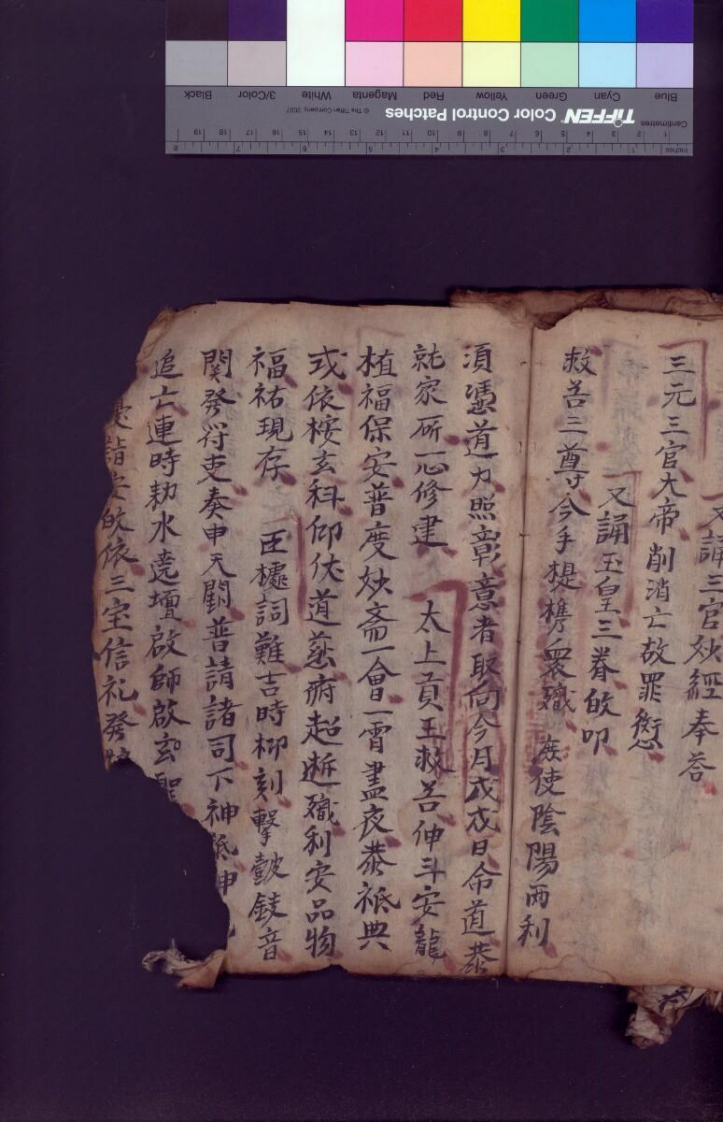 又誦三官妙經奉答
三元三官大帝削消亡故罪愆
又誦玉皇三眷皈叩
救苦三尊今手提携眾 庶使陰陽两利
須憑道力照彰意者取向今月戊戌日命道恭
就家所一心修建 太上貢王救苦伸斗安龍
植福保安普度妙斎一會一霄晝夜恭祗典
或依按玄科仰伏道慈府起断 利安品物
福祐現存 臣據詞難吉時柳刻擊皷鈘音
関發符吏奏申天闕普請諸司下神祗
追亡連時勑水堯壇啟師啟玄聖
詣安皈依三宝信礼發
TIFFEN Color Control Patches
© The Tiffen Company, 2007
Centimetres
Inches
Blue Cyan Green Yellow Red Magenta White 3/Color Black